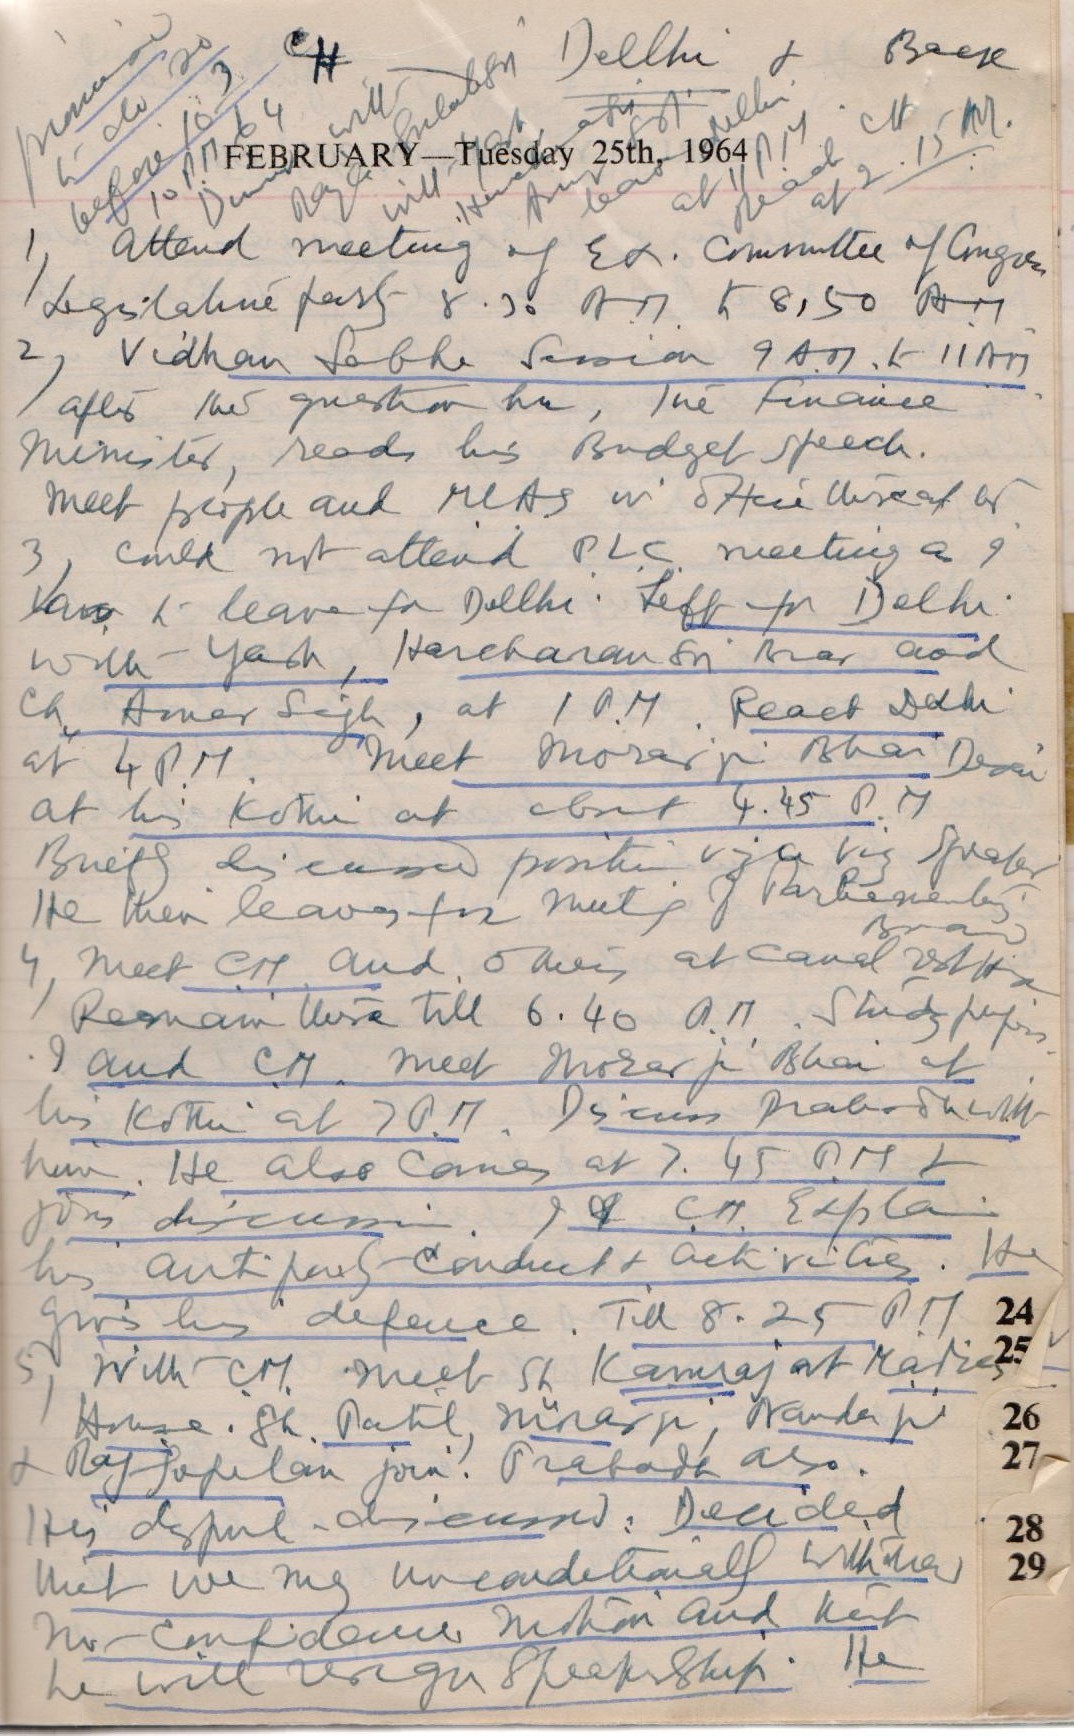 CH Dellhi & Back
promised
to do so
before 10 3 64
10 P.M.
Dinner with
will
leave Delhi
at 11 P.M.
reach CH - M.
at 2.15
FEBRUARY—Tuesday 25th, 1964
1, Attend meeting of Ex. Committee of Congress
Legislative party 8.30 A.M. to 8,50 A.M
2, Vidhan Sabha Session 9 A.M. to 11 AM
after the question hr, the Finance
Minister, reads his Budget speech.
Meet people and MLAs in office thereafter
3, Could not attend P.L.C. meeting as I
was to leave for Dellhi. Left for Delhi
with Yash, Harcharan Sn Brar and
Ch. Amar Sigh, at 1 P.M. Reach Delhi
at 4 P.M. Meet Morarji Bhai Desai
at his Kothi at about 4.45 P.M
Briefly discussed position viz a viz Speaker
He then leaves for meeting of Parliamentary
Board
4, Meet CM and others at Canal rest House
Remain there till 6.40 P.M. Study papers.
I and C.M. meet Morarji Bhai at
his Kothi at 7 P.M. Discuss Prabodh with
him. He also comes at 7.45 P.M to
join discussion. I & C.M. Explain
his anti party conduct & activities. He
gives his defence. Till 8.25 P.M
5, With C.M. meet Sh Kamraj at Madras
House. Sh. Patil, Morarji, Nandaji
& Raj Gopalan join. Prabodh also.
His dispute discussed. Decided
that we may unconditionally withdraw
no-confidence motion and that
he will resign Speakership. He
24
25
26
27
28
29